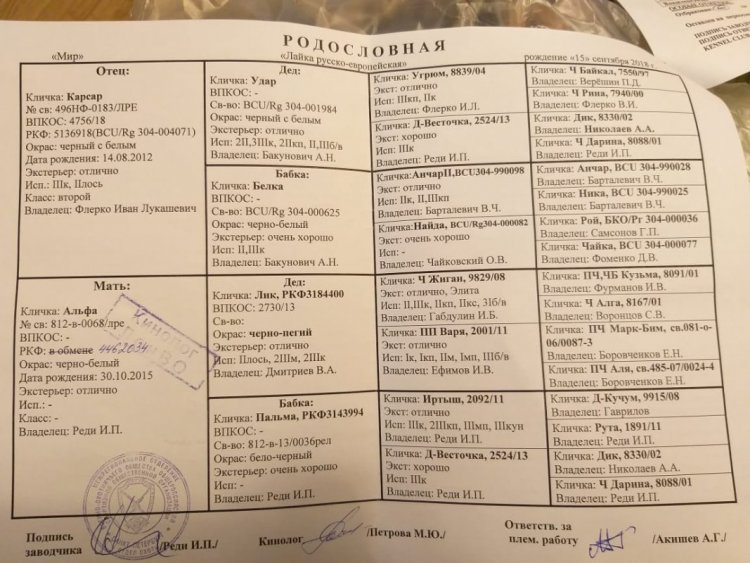 РОДОСЛОВНАЯ
«Мир»
«Лайка русско-европейская»
рождение «15» сентября 2018 г
Отец:
Кличка: Карсар
№ св: 496НФ-0183/ЛРЕ
ВПКОС: 4756/18
РКФ: 5136918(BCU/Rg 304-004071)
Окрас: черный с белым
Дата рождения: 14.08.2012
Экстерьер: отлично
Исп.: IIIк, IIлось
Класс: второй
Владелец: Флерко Иван Лукашевич
Мать:
Кличка: Альфа
№ св: 812-в-0068/лре
ВПКОС: -
РКФ: в обмене 4462034
Окрас: черно-белый
Дата рождения: 30.10.2015
Экстерьер: отлично
Исп.: -
Класс: -
Владелец: Реди И.П.
Кинолог
Дед:
Кличка: Удар
ВПКОС: -
Св-во: BCU/Rg 304-001984
Окрас: черный с белым
Экстерьер: отлично
Исп: 2II,3IIIк, 2IIп, II,IIIб/в
Владелец: Бакунович А.Н.
Бабка:
Кличка: Белка
ВПКОС: -
Св-во: BCU/Rg 304-000625
Окрас: черно-белый
Экстерьер: очень хорошо
Исп: II,IIIк
Владелец: Бакунович А.Н.
Дед:
Кличка: Лик, РКФ3184400
ВПКОС: 2730/13
Св-во:
Окрас: черно-пегий
Экстерьер: отлично
Исп: IIлось, 2IIIм, 2IIIк
Владелец: Дмитриев В.А.
Бабка:
Кличка: Пальма, РКФ3143994
ВПКОС: -
Св-во: 812-в-13/0036рел
Окрас: бело-черный
Экстерьер: очень хорошо
Исп: -
Владелец: Реди И.П.
Кличка: Угрюм, 8839/04
Экст: отлично
Исп: IIIкп, IIк
Владелец: Флерко И.Л.
Кличка: Д-Весточка, 2524/13
Экст: хорошо
Исп: IIIк
Владелец: Реди И.П.
Кличка:АнчарII,BCU304-990098
Экст: отлично
Исп: IIк, II,IIIкп
Владелец: Барталевич В.Ч.
Кличка:Найда, BCU/Rg304-000082
Экст: очень хорошо
Исп: -
Владелец: Чайковский О.В.
Кличка: Ч Жиган, 9829/08
Экст: отлично, Элита
Исп: II,IIIк, IIкп, IIкс, 3Iб/в
Владелец: Габдулин И.Б.
Кличка: ПП Варя, 2001/11
Экст: отлично
Исп: Iк, Iкп, IIм, Iмп, IIIб/в
Владелец: Ефимов И.В.
Кличка: Иртыш, 2092/11
Экст: отлично
Исп: IIIк, 2IIIкп, IIIмп, IIIкун
Владелец: Реди И.П.
Кличка: Д-Весточка, 2524/13
Экст: хорошо
Исп: IIIк
Владелец: Реди И.П.
Кличка: Ч Байкал, 7550/97
Владелец: Верёшин П.Д.
Кличка: Ч Рина, 7940/00
Владелец: Флерко В.И.
Кличка: Дик, 8330/02
Владелец: Николаев А.А.
Кличка: Ч Дарина, 8088/01
Владелец: Реди И.П.
Кличка: Анчар, BCU 304-990028
Владелец: Барталевич В.Ч.
Кличка: Ника, BCU 304-990025
Владелец: Барталевич В.Ч.
Кличка: Рой, БКО/Рг 304-000036
Владелец: Самсонов Г.П.
Кличка: Чайка, BCU 304-000077
Владелец: Фоменко Д.В.
Кличка: ПЧ,ЧБ Кузьма, 8091/01
Владелец: Фурманов И.В.
Кличка: Ч Алга, 8167/01
Владелец: Воронцов С.В.
Кличка: ПЧ Марк-Бим, св.081-о-
06/0087-3
Владелец: Боровченков Е.Н.
Кличка: ПЧ Аля, св.485-07/0024-4
Владелец: Боровченков Е.Н.
Кличка: Д-Кучум, 9915/08
Владелец: Гаврилов
Кличка: Рута, 1891/11
Владелец: Реди И.П.
Кличка: Дик, 8330/02
Владелец: Николаев А.А.
Кличка: Ч Дарина, 8088/01
Владелец: Реди И.П.
Подпись
заводчика
/Реди И.П./
Кинолог
/Петрова М.Ю./
Ответств. за
плем. работу
/Акишев А.Г./
KENNEL CLUB